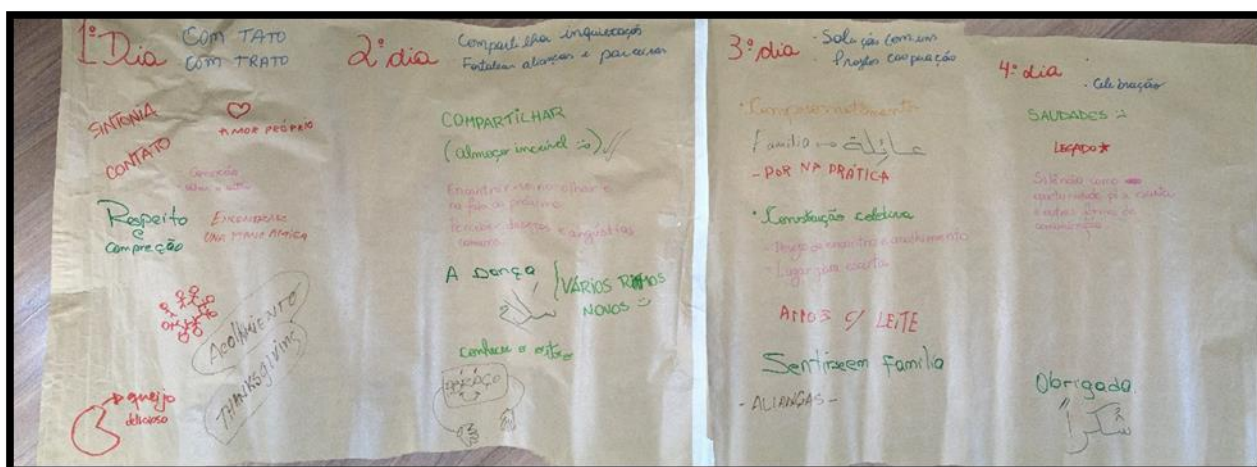 1º Dia
COM TATO
COM TRATO
SINTONIA
AMOR PRÓPRIO
CONTATO
Conexão
Respeito
e
compreção
ENCONTRAR
UNA MANO AMIGA
ACOLHIMIENTO
THANKSGIVING
queijo
delicioso
2º dia
Compartilhar inquietações
Fortalecer alianças e parcerias
COMPARTILHAR
(almoço incrível :)
Encontrar-se no olhar e
na fala do próximo
Perceber desejos e angústias
comuns
A Dança
VÁRIOS RITMOS
NOVOS :)
conhecer o outro
ABRAÇO
3º dia
Solução comum
Projetos cooperação
Comprometimento
Familia → عائلة
- POR NA PRÁTICA
Construção coletiva
- Desejo de encontro e acolhimento
- Lugar para escuta
Arroz c/ LEITE
Sentirse em familia
- ALIANÇAS -
4º dia
Celebração
SAUDADES :)
LEGADO
Silêncio como
oportunidade p/ a escuta
e outras formas de
comunicação
Obrigada
شكراً